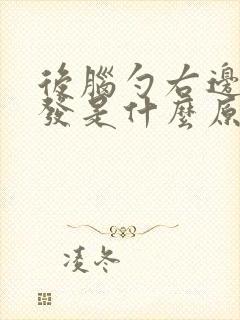 後腦勺右邊
發是什麼原
凌冬